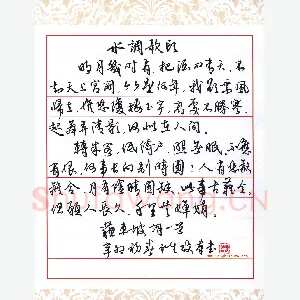 水调歌头
明月几时有,把酒问青天,不
知天上宫阙,今夕是何年。我欲乘风
归去,惟恐琼楼玉宇,高处不胜寒,
起舞弄清影,何似在人间。
转朱阁,低绮户,照无眠。不应
有恨,何事长向别时圆?人有悲欢
离合,月有阴晴圆缺,此事古难全。
但愿人长久,千里共婵娟。
苏东坡词一首